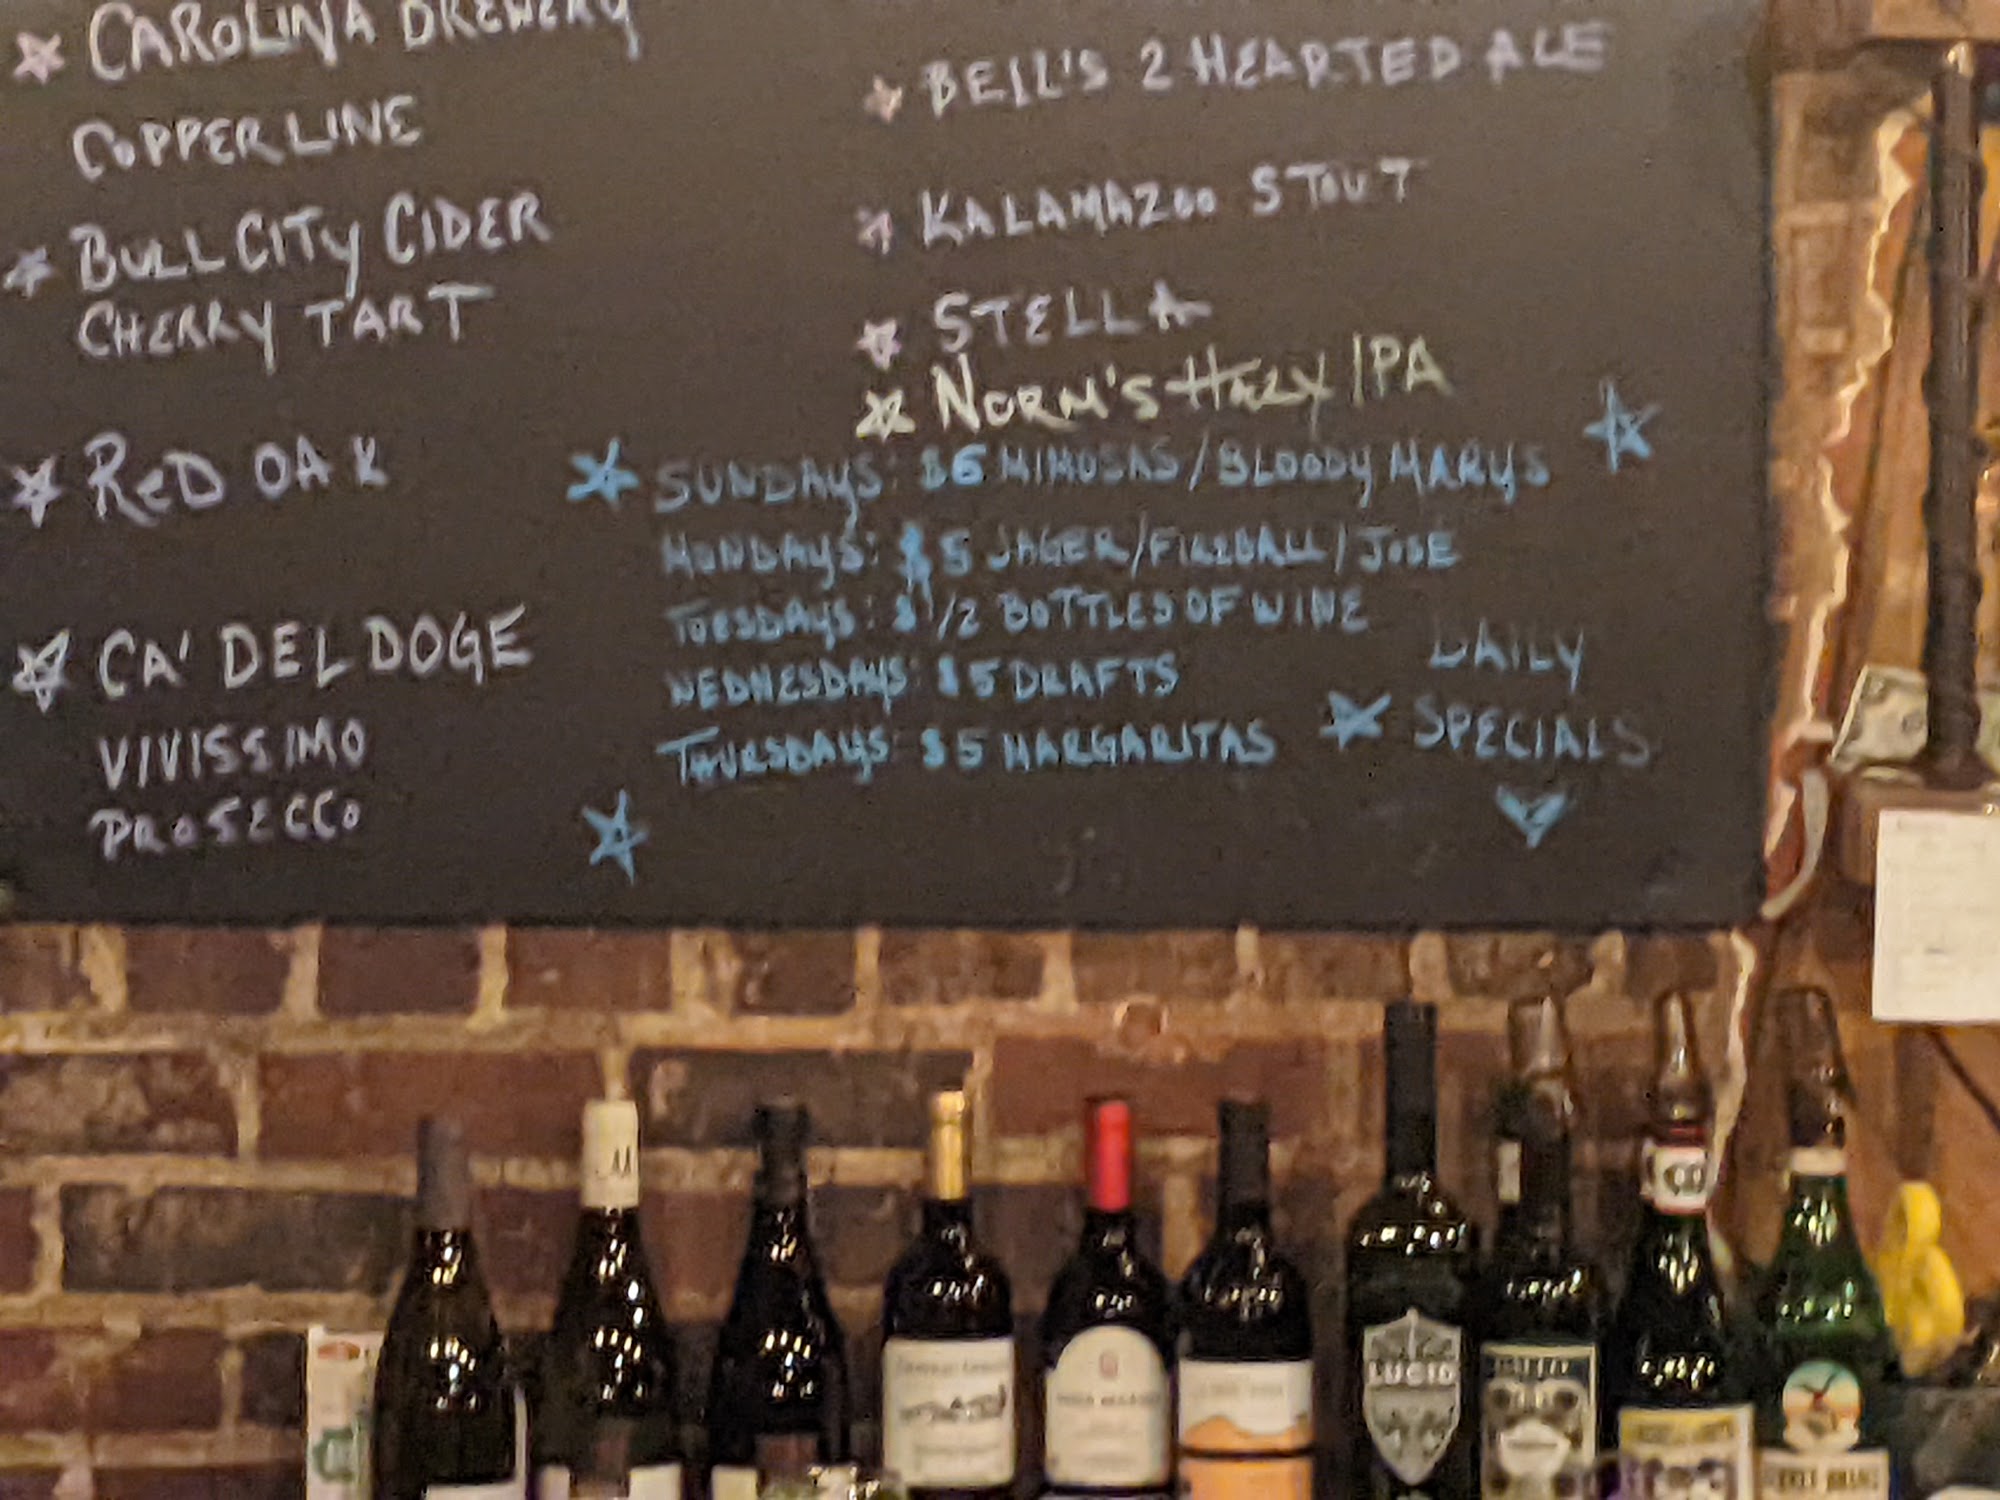 CAROLINA BREWERY
COPPERLINE
BULL CITY CIDER
CHERRY TART
RED OAK
CA' DEL DOGE
VIVISSIMO
PROSECCO
BELL'S 2 HEARTED ALE
KALAMAZOO STOUT
STELLA
NORM'S HAZY IPA
SUNDAYS: $6 MIMOSAS/BLOODY MARYS
MONDAYS: $5 JAGER/FIREBALL/JOSE
TUESDAYS: $ 1/2 BOTTLES OF WINE
WEDNESDAYS: $5 DRAFTS
THURSDAYS: $5 MARGARITAS
DAILY
SPECIALS
LUCID